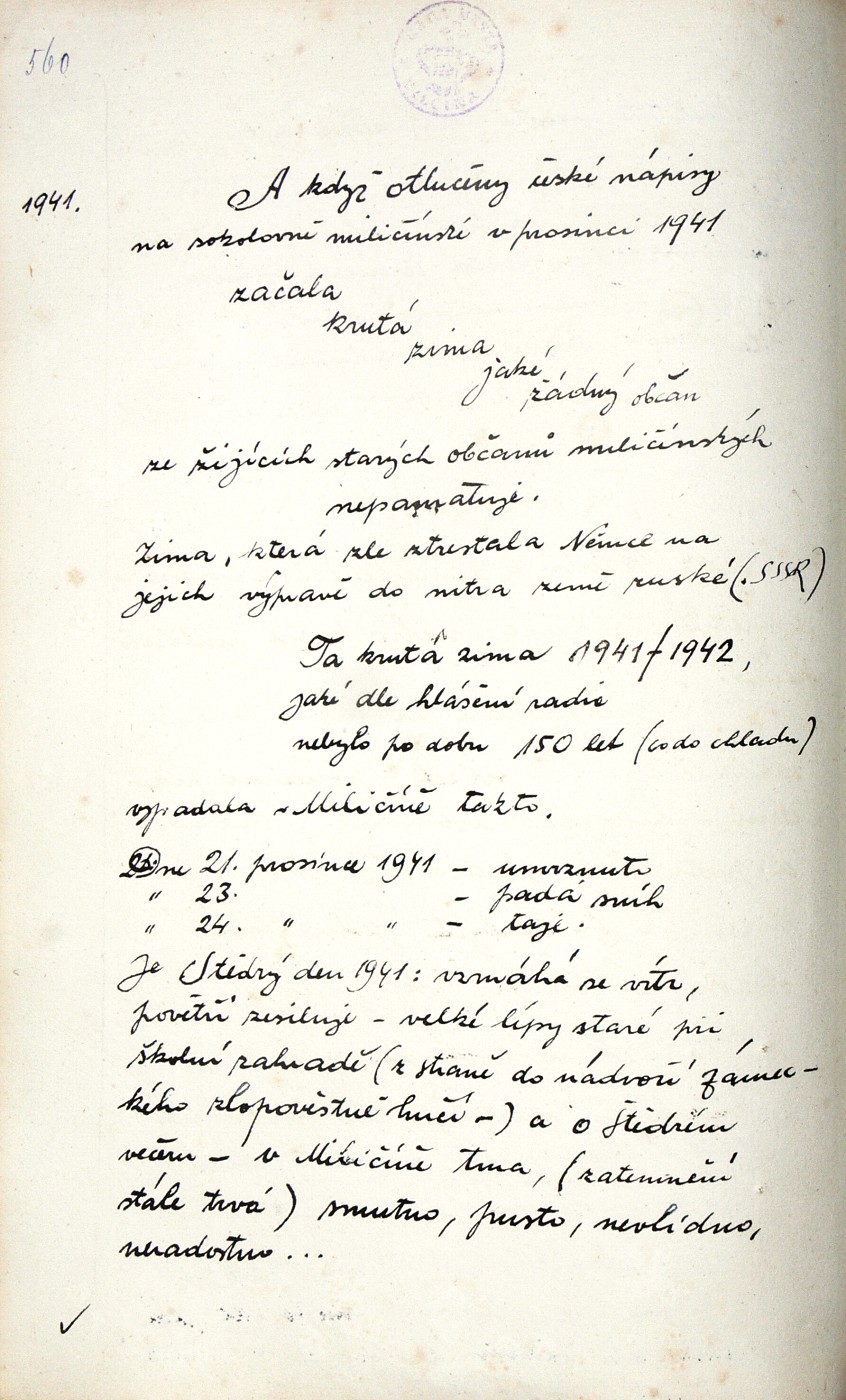 560
1941.
A když otlučeny české nápisy
na sokolovně miličínské v prosinci 1941
začala
krutá
zima
jaké
žádný občan
ze žijících starých občanů miličínských
nepamatuje.
Zima, která zle ztrestala Němce na
jejich výpravě do nitra země ruské (SSSR)
Ta krutá zima 1941/1942,
jaké dle hlášení radio
nebylo po dobu 150 let (co do chladu)
vypadala v Miličíně takto.
Dne 21. prosince 1941 – umrznuto
" 23. – padá sníh
" 24. " " – taje.
Je Štědrý den 1941: vzmáhá se vítr,
povětří zesiluje – velké lípy staré při
školní zahradě (z straně do nádvoří zámec-
kého zlopověstně hučí –) a o štědrém
večeru – v Miličíně tma, (zatemnění
stále trvá) smutno, pusto, nevlídno,
neradostno ...